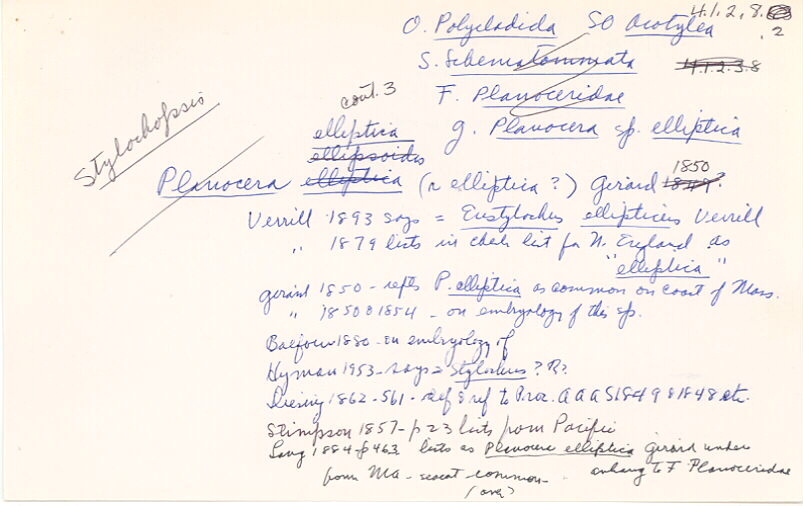 4.1.2.8.
O. Polycladida SO Acotylea 2
S. Schematommata 4.1.2.3.8
F. Planoceridae
cont. 3
Stylochopsis
elliptica g. Planocera sp. elliptica
ellipsoides
Planocera elliptica (n elliptica?) Gerard 1850 1849?
Verrill 1893 says = Eustylochus ellipticus Verrill
" 1879 lists in check list for N. England as
"elliptica"
Gerard 1850 - refts P. elliptica as common on coast of Mass.
" 1850 & 1854 - on embryology of this sp.
Balfour 1880 - on embryology of
Hyman 1953 - says = Stylochus? R?
Diesing 1862 - 561 - def & ref to Proc. A A A S 1849 & 1848 etc.
Stimpson 1857 - p 23 lists from Pacific
Lang 1884 - p 463 lists as Planocera elliptica Gerard under
from Ma - common - anhang to F Planoceridae
(over)